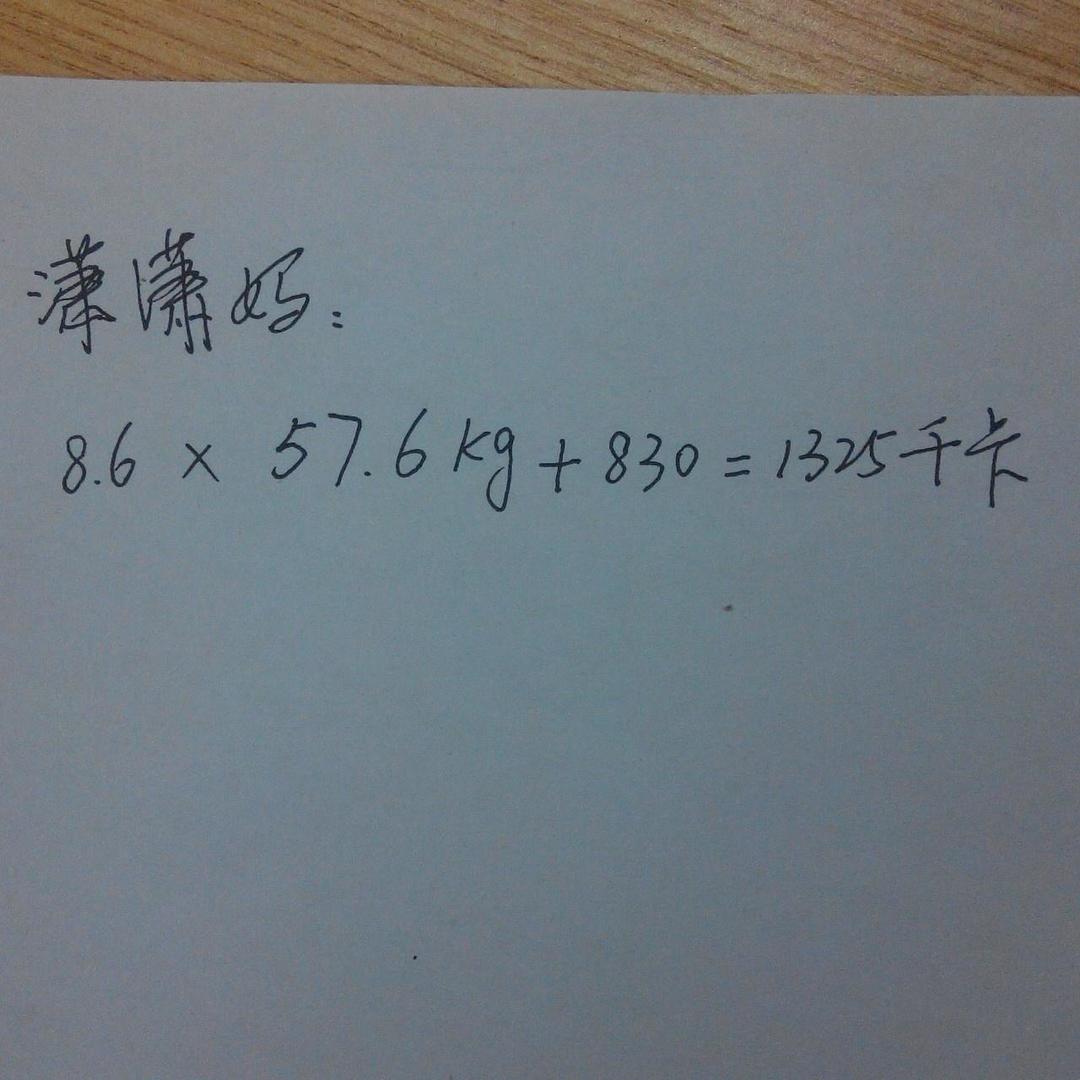 潇潇妈:
8.6 × 57.6kg+830=1325千卡